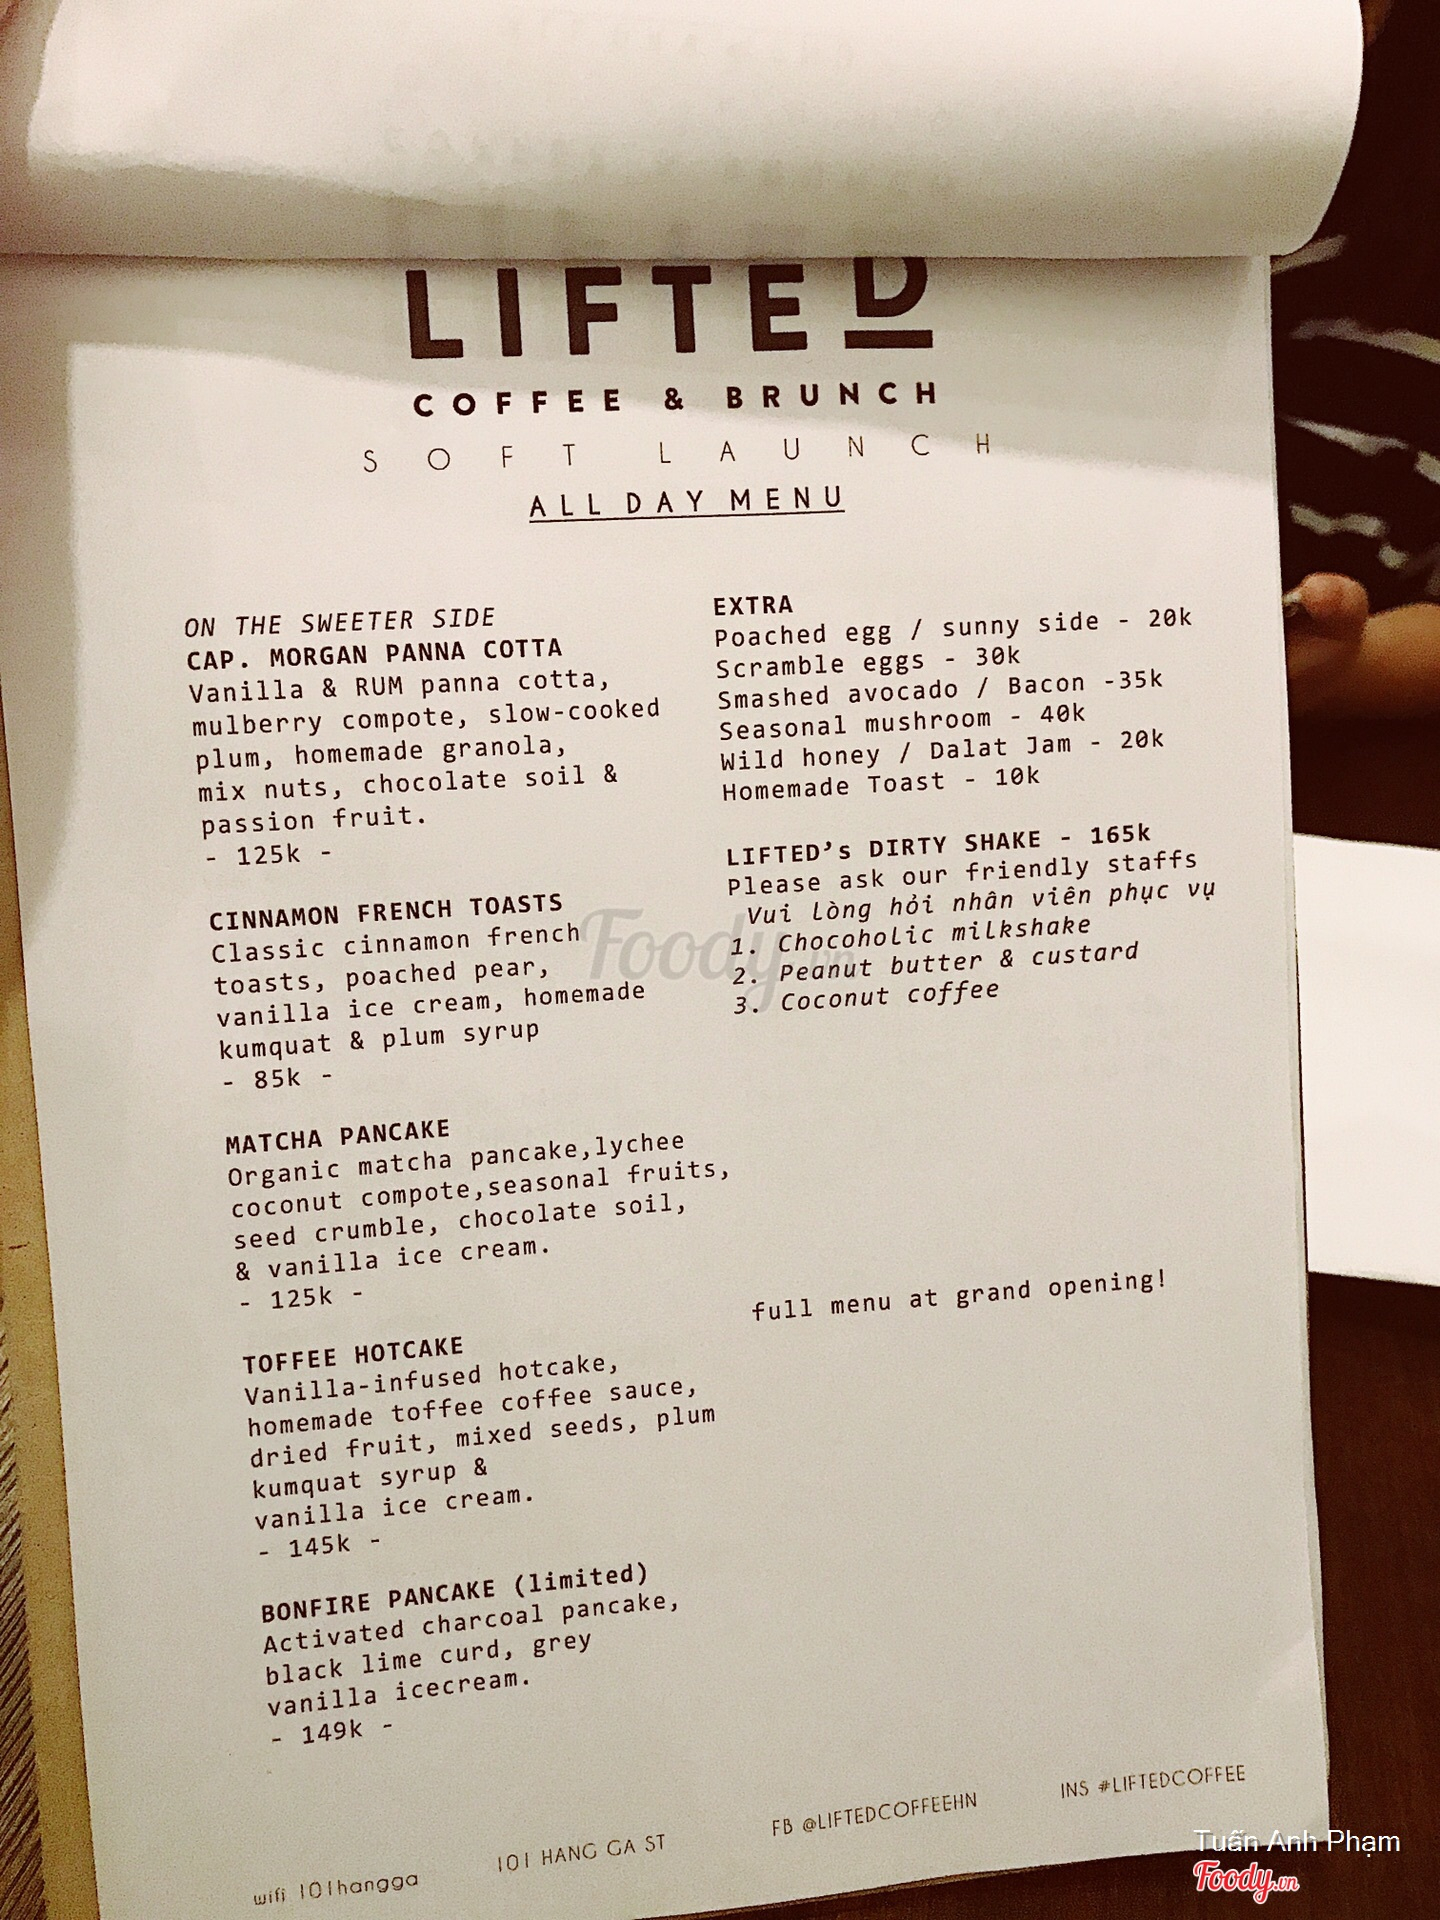 LIFTED
COFFEE & BRUNCH
SOFT LAUNCH
ALL DAY MENU
ON THE SWEETER SIDE
CAP. MORGAN PANNA COTTA
Vanilla & RUM panna cotta,
mulberry compote, slow-cooked
plum, homemade granola,
mix nuts, chocolate soil &
passion fruit.
- 125k -
CINNAMON FRENCH TOASTS
Classic cinnamon french
toasts, poached pear,
vanilla ice cream, homemade
kumquat & plum syrup
- 85k -
MATCHA PANCAKE
Organic matcha pancake,lychee
coconut compote,seasonal fruits,
seed crumble, chocolate soil,
& vanilla ice cream.
- 125k -
TOFFEE HOTCAKE
Vanilla-infused hotcake,
homemade toffee coffee sauce,
dried fruit, mixed seeds, plum
kumquat syrup &
vanilla ice cream.
- 145k -
BONFIRE PANCAKE (limited)
Activated charcoal pancake,
black lime curd, grey
vanilla icecream.
- 149k -
EXTRA
Poached egg / sunny side - 20k
Scramble eggs - 30k
Smashed avocado / Bacon -35k
Seasonal mushroom - 40k
Wild honey / Dalat Jam - 20k
Homemade Toast - 10k
LIFTED's DIRTY SHAKE - 165k
Please ask our friendly staffs
Vui lòng hỏi nhân viên phục vụ
1. Chocoholic milkshake
2. Peanut butter & custard
3. Coconut coffee
full menu at grand opening!
wifi 101hangga
101 HANG GA ST
FB @LIFTEDCOFFEEHN
INS #LIFTEDCOFFEE
Foody.vn
Tuấn Anh Phạm
Foody.vn